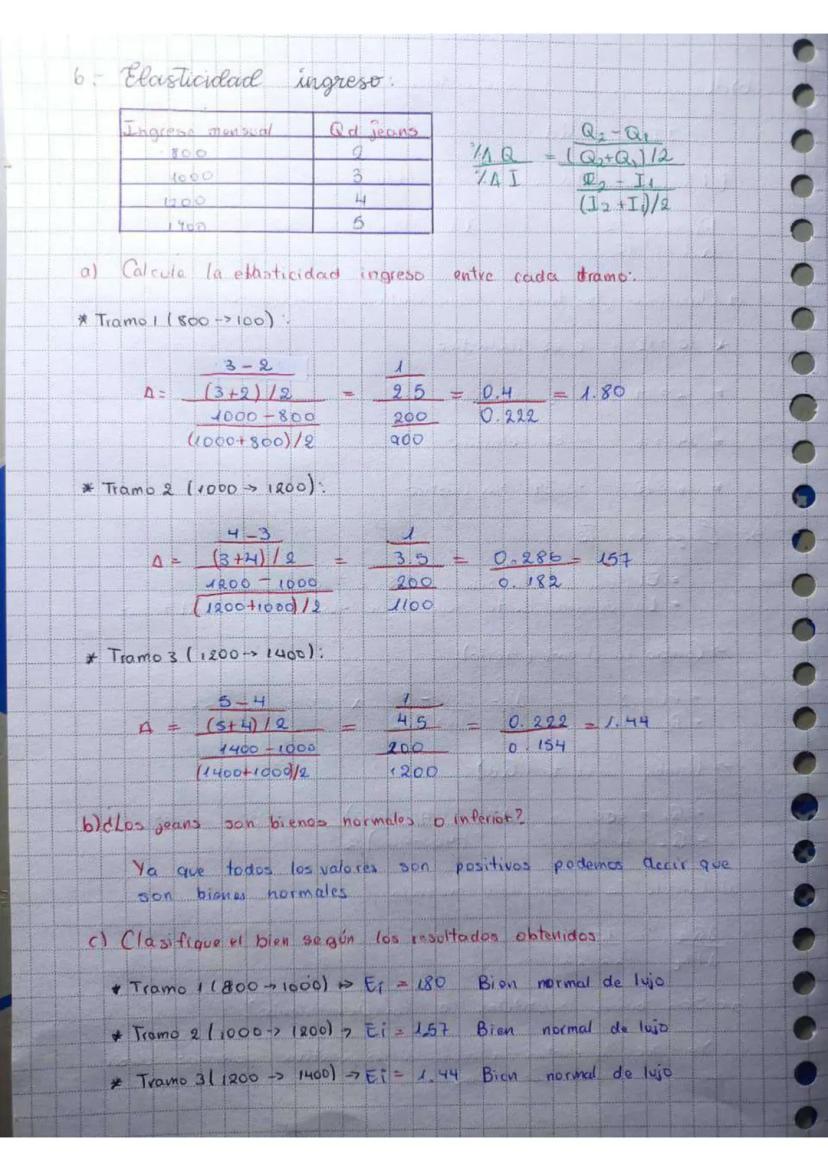 6.- Elasticidad ingreso:
Ingreso mensual Qd jeans
800 2
1000 3
1200 4
1400 5
%Δ Q / %Δ I = ((Q2 - Q1) / ((Q2+Q1)/2)) / ((I2 - I1) / ((I2+I1)/2))
a) Calcula la elasticidad ingreso entre cada tramo:
* Tramo 1 (800 -> 100):
Δ = ((3-2) / ((3+2)/2)) / ((1000-800) / ((1000+800)/2)) = (1 / 2.5) / (200 / 900) = 0.4 / 0.222 = 1.80
* Tramo 2 (1000 -> 1200):
Δ = ((4-3) / ((3+4)/2)) / ((1200-1000) / ((1200+1000)/2)) = (1 / 3.5) / (200 / 1100) = 0.286 / 0.182 = 157
* Tramo 3 (1200 -> 1400):
Δ = ((5-4) / ((5+4)/2)) / ((1400-1000) / ((1400+1000)/2)) = (1 / 4.5) / (200 / 1200) = 0.222 / 0.154 = 1.44
b) ¿Los jeans son bienes normales o inferior?
Ya que todos los valores son positivos podemos decir que
son bienes normales
c) Clasifique el bien según los resultados obtenidos
* Tramo 1 (800 -> 1000) => Ei = 180 Bien normal de lujo
* Tramo 2 (1000 -> 1200) -> Ei = 1,57 Bien normal de lujo
* Tramo 3 (1200 -> 1400) -> Ei = 1.44 Bien normal de lujo